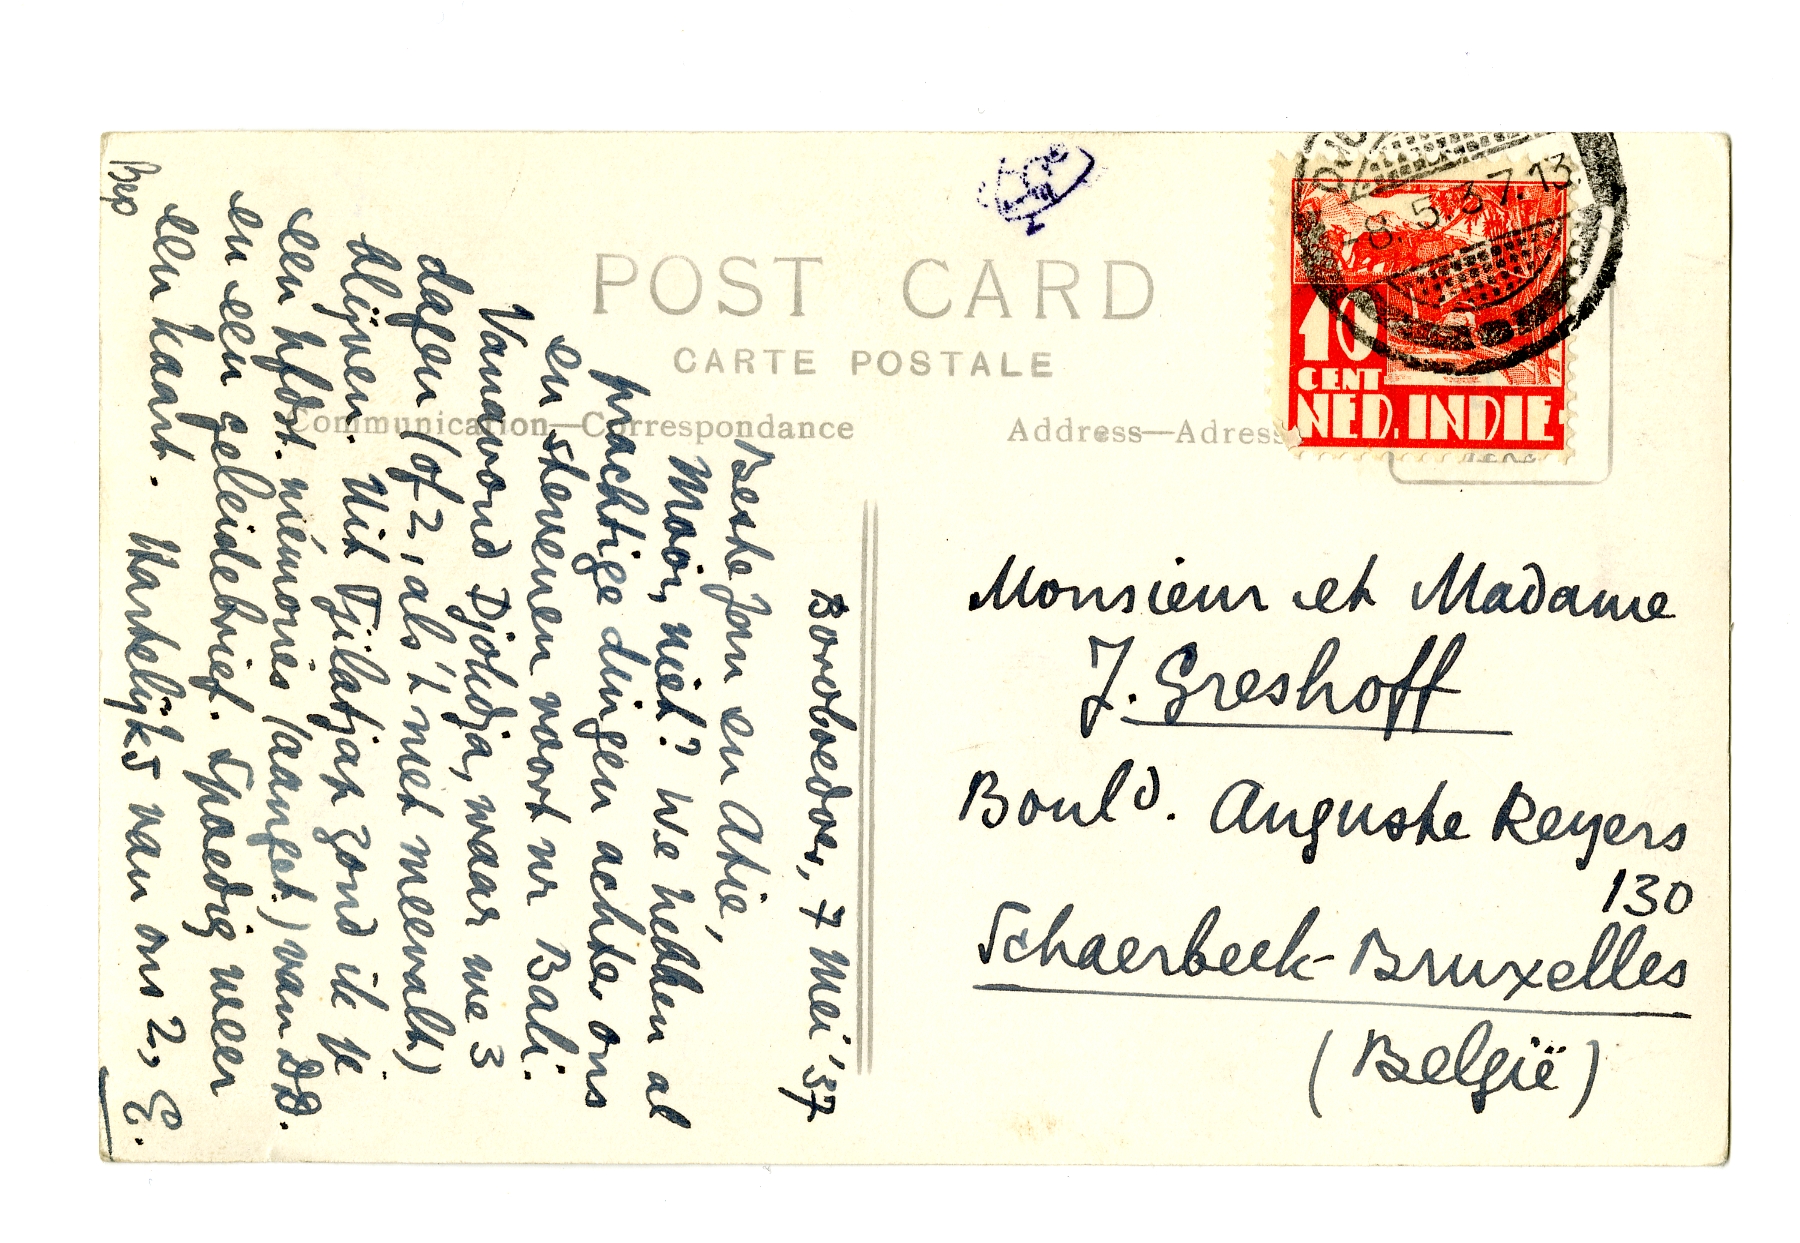 POST CARD
CARTE POSTALE
Communication—Correspondance
Address—Adress
8.5.37.13
10
CENT
NED. INDIE
Boroboedoer, 7 Mei '37
Beste Jan en Atie,
Mooi, niet? We hebben al
prachtige dingen achter ons
en stevenen voort nr Bali.
Vanavond Djokdja, waar we 3
dagen (of 2, als 't niet meevalt)
blijven. Uit Tjilatjap zond ik je
een hfdst. mémoires (aanget.) van DD.
en een geleidebrief. Spoedig weer
een kaart. Hartelijks van ons 2, E.
Bep
Monsieur et Madame
J. Greshoff
Bould. Auguste Reyers
130
Schaerbeek-Bruxelles
(België)